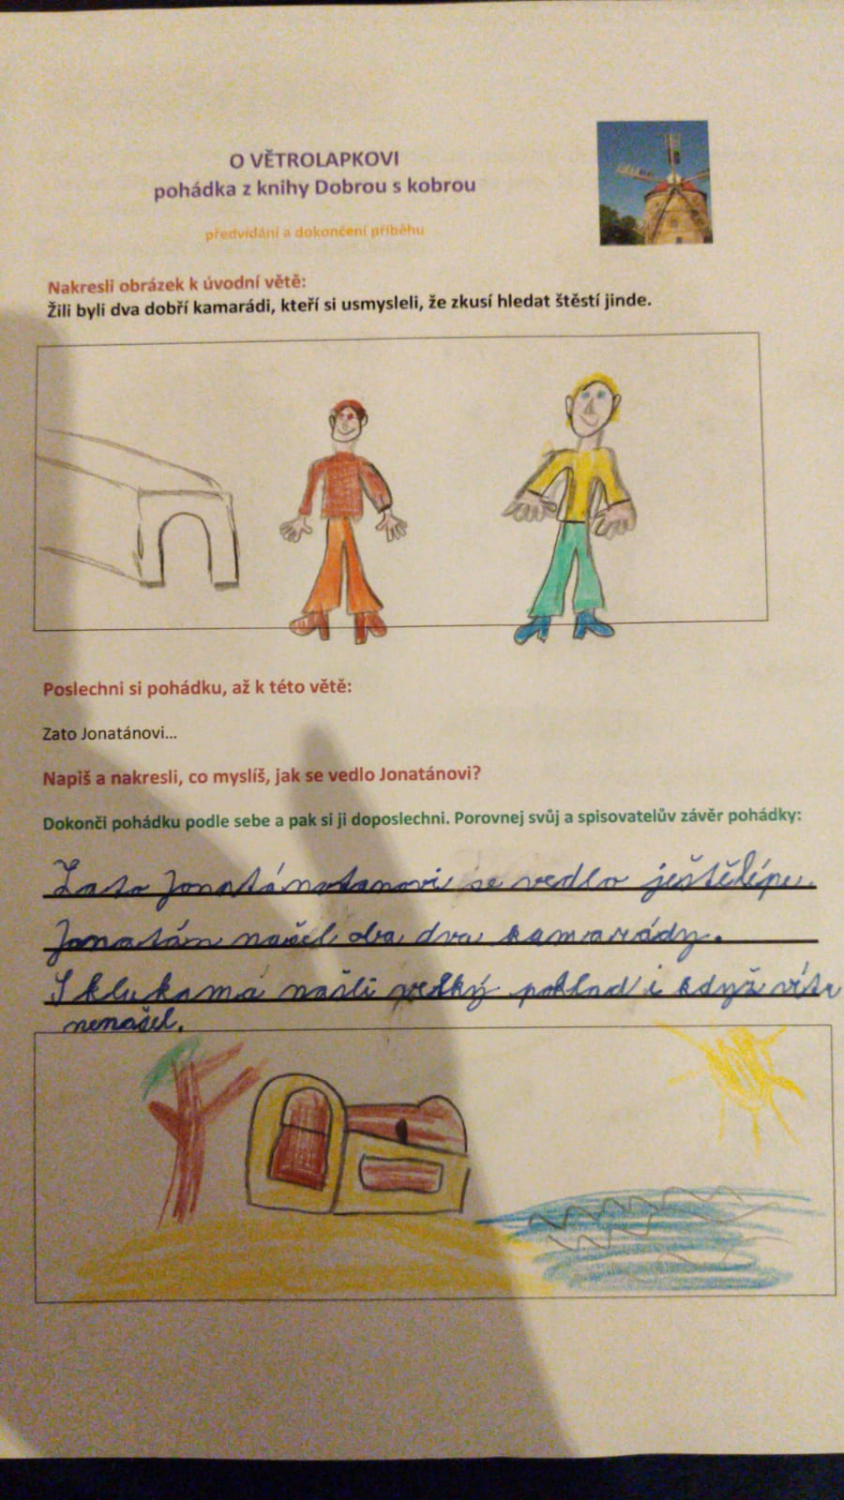 O VĚTROLAPKOVI
pohádka z knihy Dobrou s kobrou
předvídání a dokončení příběhu
Nakresli obrázek k úvodní větě:
Žili byli dva dobří kamarádi, kteří si usmysleli, že zkusí hledat štěstí jinde.
Poslechni si pohádku, až k této větě:
Zato Jonatánovi...
Napiš a nakresli, co myslíš, jak se vedlo Jonatánovi?
Dokonči pohádku podle sebe a pak si ji doposlechni. Porovnej svůj a spisovatelův závěr pohádky:
Zato se vedlo ještě lépe.
Jonatán našel oba dva kamarády.
našli velký poklad i když vítr
nenašel.